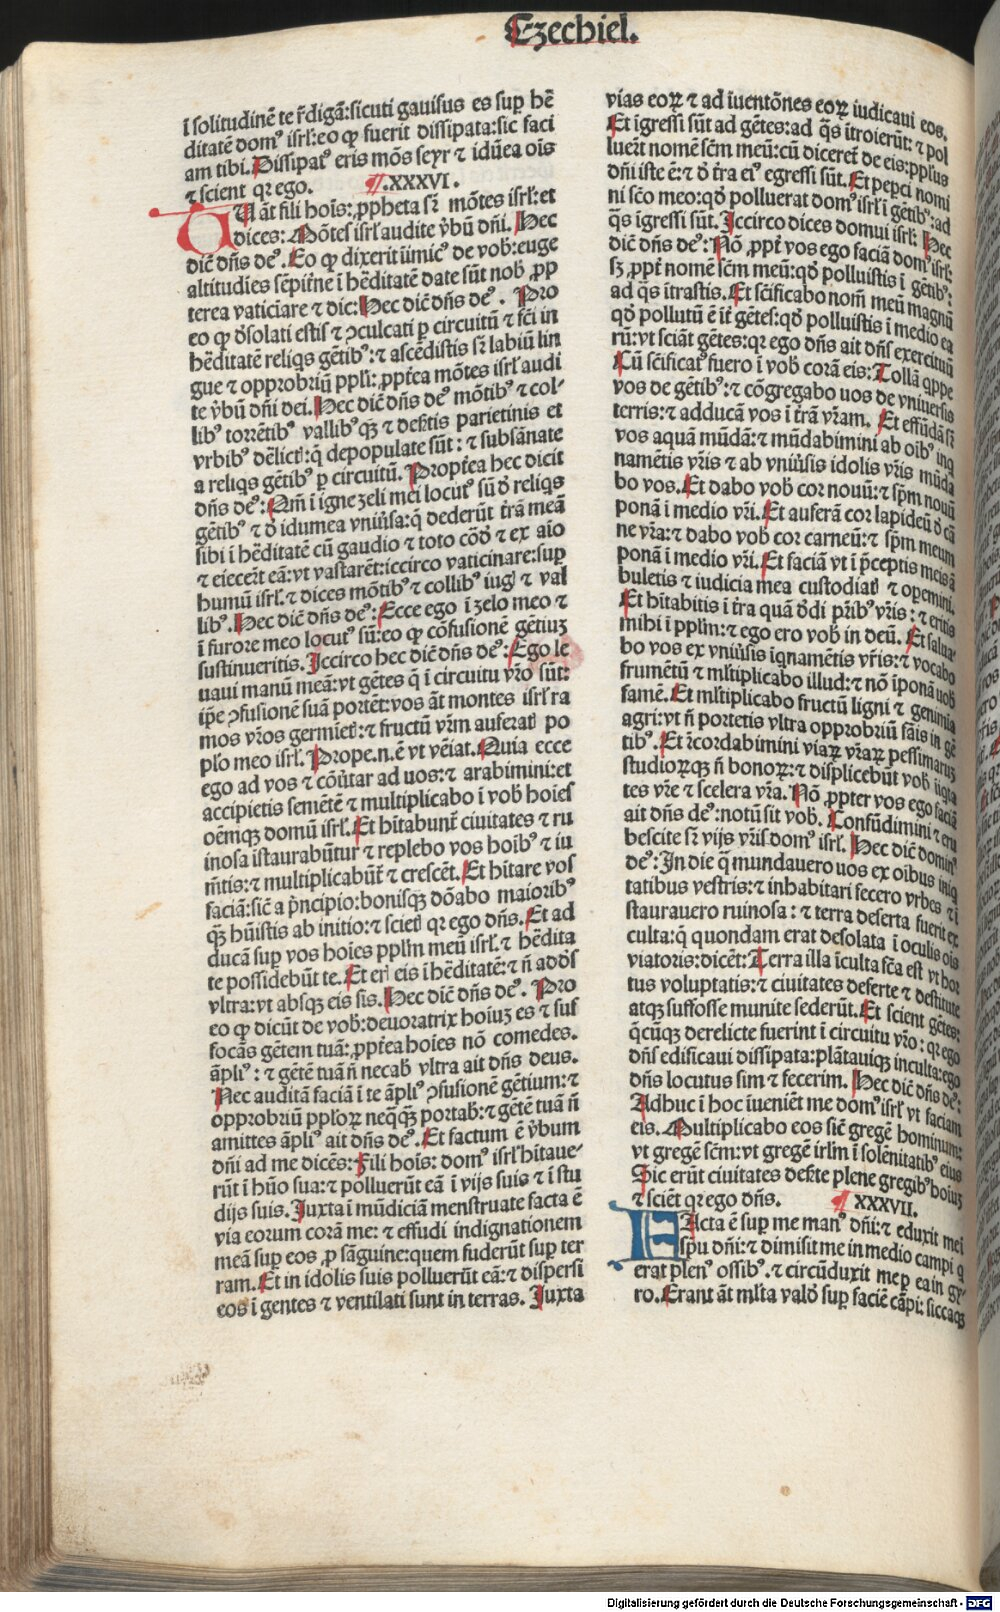 Ezechiel.
ī solitudinē te r̄digā: sicuti gavisus es suꝑ hē
ditatē domꝰ isrl̄: eo ꝙ fuerit dissipata: sic faci
am tibi. Dissipatꝰ eris mōs seyr ⁊ idūea oīs
⁊ scient qꝛ ego. ¶.XXXVI.
TU āt fili hoīs: ꝓpheta sꝛ̄ mōtes isrl̄: et
dices: Mōtes isrl̄ audite v̄bū dn̄i. Hec
dic̄ dn̄s deꝰ. Eo ꝙ dixerit īimicꝰ de vob̄: euge
altitudies sēpit̄ne ī hēditatē date sūt nob̄ ꝓp
terea vaticīare ⁊ dic: Hec dic̄ dn̄s deꝰ. Pro
eo ꝙ d̄solati estis ⁊ ꝯculcati ꝑ circuitū ⁊ fc̄i in
hēditatē reliqs gētibꝰ: ⁊ ascēdistis sꝛ̄ labiū lin
gue ⁊ opprobriū ppl̄i: ꝓpt̄ea mōtes isrl̄ audi
te v̄bū dn̄i dei. Hec dic̄ dn̄s deꝰ mōtibꝰ ⁊ col-
libꝰ torrētibꝰ vallibꝰqꝫ ⁊ deſt̄is parietinis et
vrbibꝰ dēlict̄: q̄ depopulate sūt: ⁊ subsānate
a reliqs gētibꝰ ꝑ circuitū. Propt̄ea hec dicit
dn̄s deꝰ: Qm̄ ī igne zeli mei locutꝰ sū d̄ reliqs
gētibꝰ ⁊ d̄ idumea vniūsa: q̄ dederūt t̄rā meā
sibi ī hēditatē cū gaudio ⁊ toto cōd̄ ⁊ ex aīo
⁊ eiecer̄t eā: vt vastarēt: iccirco vaticinare: suꝑ
humū isrl̄. ⁊ dices mōtibꝰ ⁊ collibꝰ iugꝭ ⁊ val
libꝰ. Hec dic̄ dn̄s deꝰ: Ecce ego ī zelo meo ⁊
ī furore meo locutꝰ sū: eo ꝙ cōfusionē gētiuꝫ
sustinueritis. Iccirco hec dic̄ dn̄s deꝰ: Ego le
uaui manū meā: vt gētes q̄ ī circuitu vr̄o sūt:
ip̄e ꝯfusionē suā portēt: vos āt montes isrl̄ ra
mos vr̄os germīetꝭ: ⁊ fructū vr̄m auferatꝭ po
pl̄o meo isrl̄. Prope.n.ē vt vēiat. Quia ecce
ego ad vos ⁊ cōūtar ad uos: ⁊ arabimini: et
accipietis semētē ⁊ multiplicabo ī vob̄ hoīes
oēmqꝫ domū isrl̄. Et hītabunt̄ ciuitates ⁊ ru
inosa īstaurabūtur ⁊ replebo vos hoībꝰ ⁊ iu
m̄tis: ⁊ multiplicabūt̄ ⁊ crescēt. Et hītare vos
faciā: sic̄ a p̄ncipio: bonisqꝫ dōabo maioribꝰ
qꝫ̄ hūistis ab initio: ⁊ scietꝭ qꝛ ego dn̄s. Et ad
ducā suꝑ vos hoīes ppl̄m meū isrl̄. ⁊ hēdita
te possidebūt te. Et erꝭ eis ī hēditatē: ⁊ n̄ add̄s
vltra: vt absqꝫ eis sis. Hec dic̄ dn̄s deꝰ. Pro
eo ꝙ dicūt de vob̄: deuoratrix hoīuꝫ es ⁊ suf
focās gētem tuā: ꝓpt̄ea hoīes nō comedes.
āpliꝰ: ⁊ gētē tuā n̄ necab̄ vltra ait dn̄s deus.
Nec auditā faciā ī te āpliꝰ ꝯfusionē gētium: ⁊
opprobriū ppl̄oꝝ neqq̄ꝫ portab̄: ⁊ gētē tuā n̄
amittes āpliꝰ ait dn̄s deꝰ. Et factum ē v̄bum
dn̄i ad me dicēs: Fili hoīs: domꝰ isrl̄ hītaue-
rūt ī hūo sua: ⁊ polluerūt eā ī vijs suis ⁊ ī stu
dijs suis. Iuxta ī mūdiciā menstruate facta ē
via eorum corā me: ⁊ effudi indignationem
meā suꝑ eos ꝓ sāguine: quem fuderūt suꝑ ter
ram. Et in idolis suis polluerūt eā: ⁊ dispersi
eos ī gentes ⁊ ventilati sunt in terras. Iuxta
vias eoꝝ ⁊ ad īuentōnes eoꝝ iudicaui eos.
Et īgressi sūt ad gētes: ad q̄s ītroierūt: ⁊ pol
luer̄t nomē sc̄m meū: cū diceret̄ de eis: pp̄lus
dn̄i iste ē: ⁊ d̄ t̄ra eiꝰ egressi sūt. Et peꝑci nomi
ni sc̄o meo: qd̄ polluerat domꝰ isrl̄ ī gētibꝰ: ad
q̄s īgressi sūt. Iccirco dices domui isrl̄: Hec
dic̄ dn̄s deꝰ: Nō ꝓpt̄ vos ego faciā domꝰ isrl̄:
sꝫ ꝓpt̄ nomē sc̄m meū: qd̄ polluistis ī gētibꝰ:
ad q̄s ītrastis. Et sc̄ificabo nom̄ meū magnū
qd̄ pollutū ē īt̄ gētes: qd̄ polluistis ī medio ea
rū: vt sciāt gētes: qꝛ ego dn̄s ait dn̄s exercituū
Cū sc̄ificatꝰ fuero ī vob̄ corā eis: Tollā qppe
vos de gētibꝰ: ⁊ cōgregabo uos de vniuersis
terris: ⁊ adducā vos ī t̄rā vr̄am. Et effūdā sꝛ̄
vos aquā mūdā: ⁊ mūdabimini ab oībꝰ inq
namētis vr̄is ⁊ ab vniūsis idolis vr̄is mūda
bo vos. Et dabo vob̄ cor nouū: ⁊ sp̄m nouū
ponā ī medio vr̄i. Et auferā cor lapideū d̄ cā
ne vr̄a: ⁊ dabo vob̄ cor carneū: ⁊ sp̄m meum
ponā ī medio vr̄i. Et faciā vt ī p̄ceptis meis ā
buletis ⁊ iudicia mea custodiatꝭ ⁊ opemini.
Et hītabitis ī t̄ra quā d̄di pr̄ibꝰ vr̄is: ⁊ eritis
mihi ī ppl̄m: ⁊ ego ero vob̄ in deū. Et salua
bo vos ex vniūsis īqnamētis vr̄is: ⁊ vocabo
frumētū ⁊ ml̄tiplicabo illud: ⁊ nō īponā uob̄
famē. Et ml̄tiplicabo fructū ligni ⁊ genimia
agri: vt n̄ portetis vltra opprobriū fāis in gē
tibꝰ. Et r̄cordabimini viaꝝ vr̄aꝝ pessimaruꝫ
studioꝝqꝫ n̄ bonoꝝ: ⁊ displicebūt vob̄ īiqta
tes vr̄e ⁊ scelera vr̄a. Nō ꝓpter vos ego faciā
ait dn̄s deꝰ: notū sit vob̄. Confūdimini ⁊ eru
bescite sꝛ̄ vijs vr̄is domꝰ isrl̄. Hec dic̄ dominꝰ
deꝰ: In die q̄ mundauero uos ex oībus iniq
tatibus vestris: ⁊ inhabitari fecero vrbes ⁊ ī
staurauero ruinosa: ⁊ terra deserta fuerit ex
culta: q̄ quondam erat desolata ī oculis oīs
viatoris: dicēt: Terra illa īculta fc̄a est vt hor
tus voluptatis: ⁊ ciuitates deserte ⁊ destitute
atqꝫ suffosse munite sederūt. Et scient gētes:
q̄cūqꝫ derelicte fuerint ī circuitu vr̄o: qꝛ ego
dn̄s edificaui dissipata: plātauiqꝫ inculta: ego
dn̄s locutus sim ⁊ fecerim. Hec dic̄ dn̄s deꝰ:
Adhuc ī hoc īueniēt me domꝰ isrl̄ vt faciam
eis. Multiplicabo eos sic̄ gregē hominum:
vt gregē sc̄m: vt gregē irl̄m ī solēnitatibꝰ eius
Sic erūt ciuitates deſt̄e plene gregibꝰ hoīuꝫ
⁊ sciēt qꝛ ego dn̄s. ¶ XXXVII.
FActa ē suꝑ me manꝰ dn̄i: ⁊ eduxit me ī
sp̄u dn̄i: ⁊ dimisit me in medio campi q
erat plenꝰ ossibꝰ. ⁊ circūduxit me ꝑ ea in gy-
ro. Erant āt ml̄ta vald̄ suꝑ faciē cāpi: siccaqꝫ
Digitalisierung gefördert durch die Deutsche Forschungsgemeinschaft - DFG